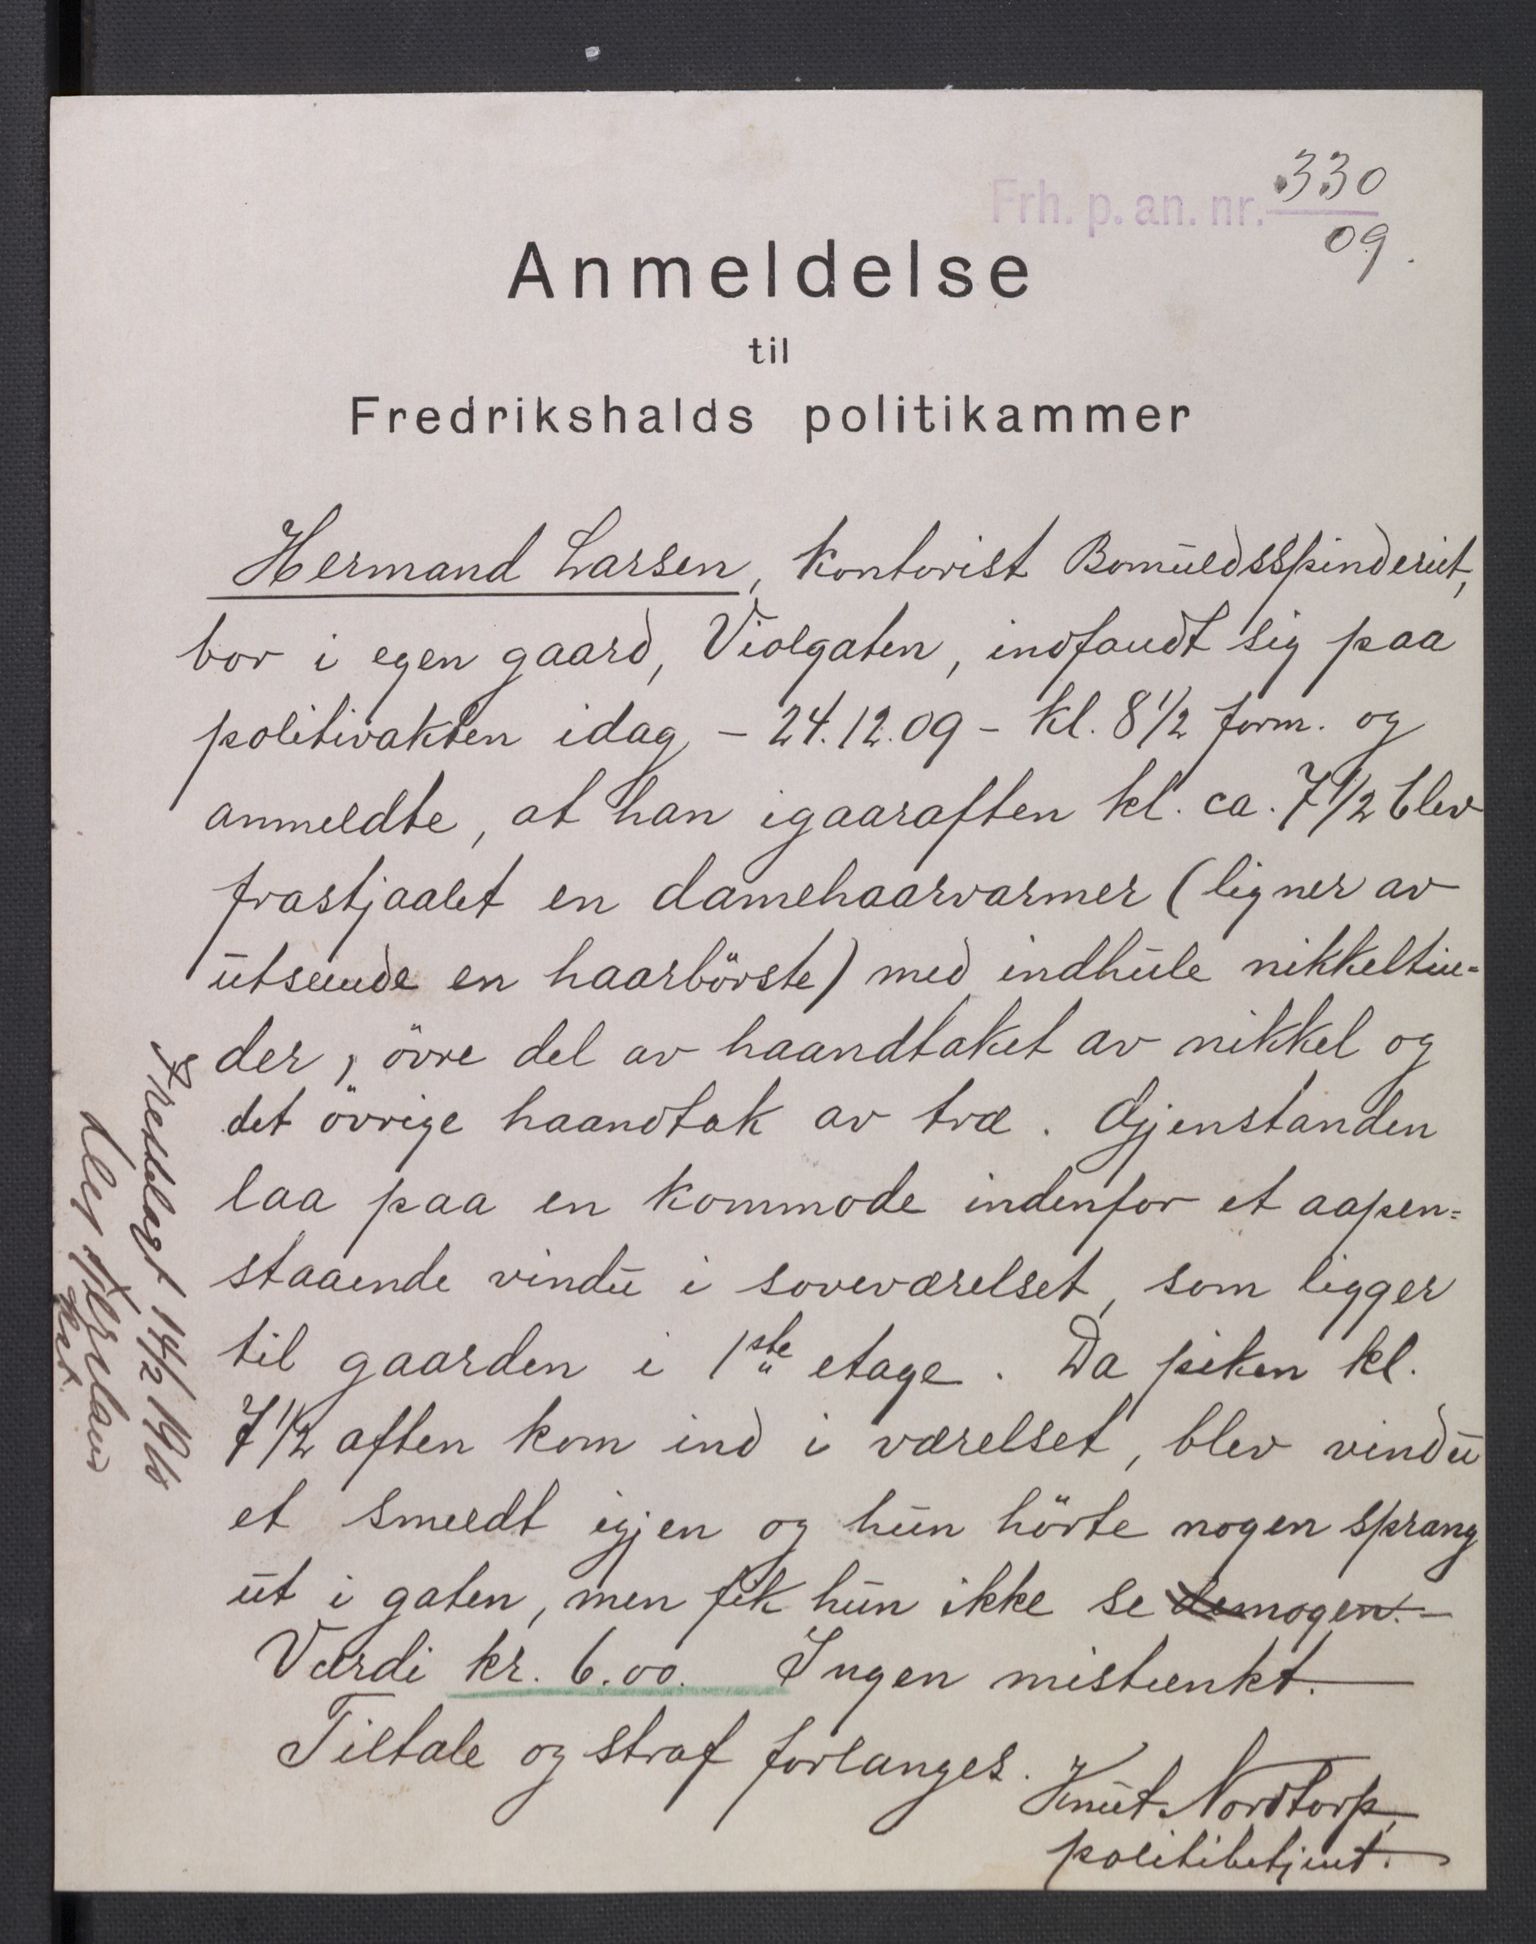 Frh. p. an. nr. 330
09.
Anmeldelse
til
Fredrikshalds politikammer
Hermand Larsen, kontorist Bomuldsspinderiet,
bor i egen gaard, Violgaten, indfandt sig paa
politivakten idag, - 24.12.09 - kl. 8 1/2 form. og
anmeldte, at han igaaraften kl. ca. 7 1/2 blev
frastjaalet en damehaarvarmer (ligner av
utseende en haarbörste) med indhule nikkeltin-
der, övre del av haandtaket av nikkel og
det övrige haandtak av træ. Gjenstanden
laa paa en kommode indenfor et aapen=
staaende vindu i soveværelset, som ligger
til gaarden i 1ste etage. Da piken kl.
7 1/2 aften kom ind i værelset, blev vindu
et smeldt igjen og hun hörte nogen sprang
ut i gaten, men fik hun ikke se nogen. -
Værdi kr. 6.00. Ingen mistænkt. -
Tiltale og straf forlanges.
Knut Nordtorp,
politibetjent.
Fredlagt 14/2 1910